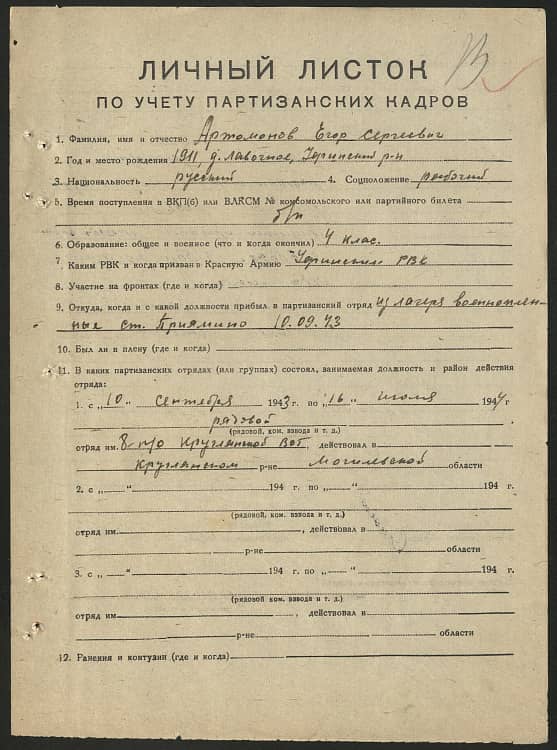 ЛИЧНЫЙ ЛИСТОК
ПО УЧЕТУ ПАРТИЗАНСКИХ КАДРОВ
1. Фамилия, имя и отчество Артомонов Егор Сергеевич
2. Год и место рождения 1911, д. Лавочное, р-н
3. Национальность русский 4. Соцположение рабочий
5. Время поступления в ВКП(б) или ВЛКСМ № комсомольского или партийного билета
б/п
6. Образование: общее и военное (что и когда окончил) 4 клас.
7. Каким РВК и когда призван в Красную Армию РВК
8. Участие на фронтах (где и когда)
9. Откуда, когда и с какой должности прибыл в партизанский отряд из лагеря военноплен-
ные ст. Приямино 10.09.43
10. Был ли в плену (где и когда)
11. В каких партизанских отрядах (или группах) состоял, занимаемая должность и район действия
отряда:
1. с „10" сентября 1943 г. по „16" июля 1944 г
рядовой
(рядовой, ком. взвода и т. д.)
отряд им. 8-п/о Круглянской ВОГ, действовал в
Круглянском р-не Могилевской области
2. с „ — " 194 г. по „ — " 194 г.
(рядовой, ком. взвода и т. д.)
отряд им. , действовал в
р-не области
3. с „ — " 194 г. по „ — " 194 г.
(рядовой, ком. взвода и т. д.)
отряд им. , действовал в
р-не области
12. Ранения и контузии (где и когда)